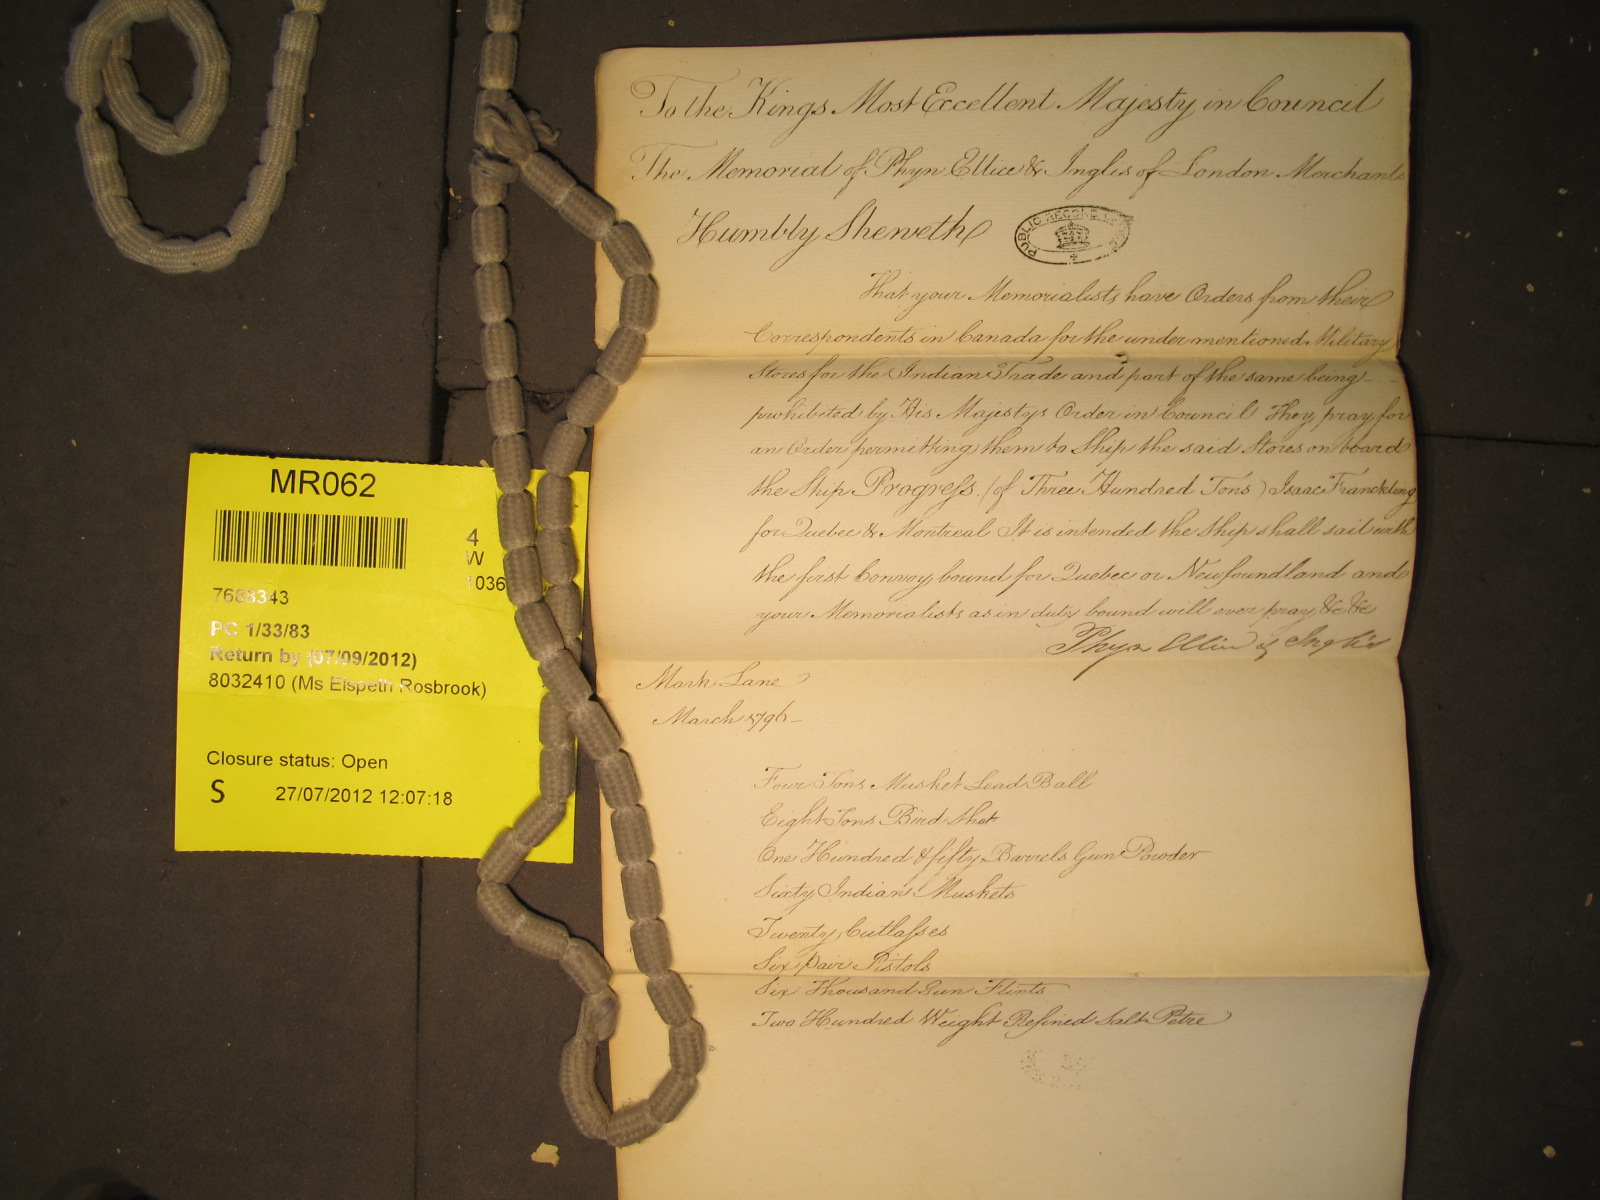 To the Kings Most Excellent Majesty in Council
The Memorial of Phyn Ellice & Inglis of London Merchants
Humbly Sheweth
PUBLIC RECORD
That your Memorialists have Orders from their
Correspondents in Canada for the undermentioned Military
Stores for the Indian Trade and part of the same being
prohibited by His Majestys Order in Council They pray for
an Order permitting them to Ship the said Stores on board
the Ship Progress (of Three Hundred Tons) Isaac Franckling
for Quebec & Montreal It is intended the Ship shall sail with
the first Convoy bound for Quebec or Newfoundland and
your Memorialists as in duty bound will ever pray &c &c
Phyn Ellice & Inglis
Mark Lane
March 1796
Four Tons Musket Lead Ball
Eight Tons Bird Shot
One Hundred & fifty Barrels Gun Powder
Sixty Indian Muskets
Twenty Cutlasses
Six pair Pistols
Six Thousand Gun Flints
Two Hundred Weight Refined Salt Petre
MR062
4
W
1036
7688343
PC 1/33/83
Return by (07/09/2012)
8032410 (Ms Elspeth Rosbrook)
Closure status: Open
S 27/07/2012 12:07:18